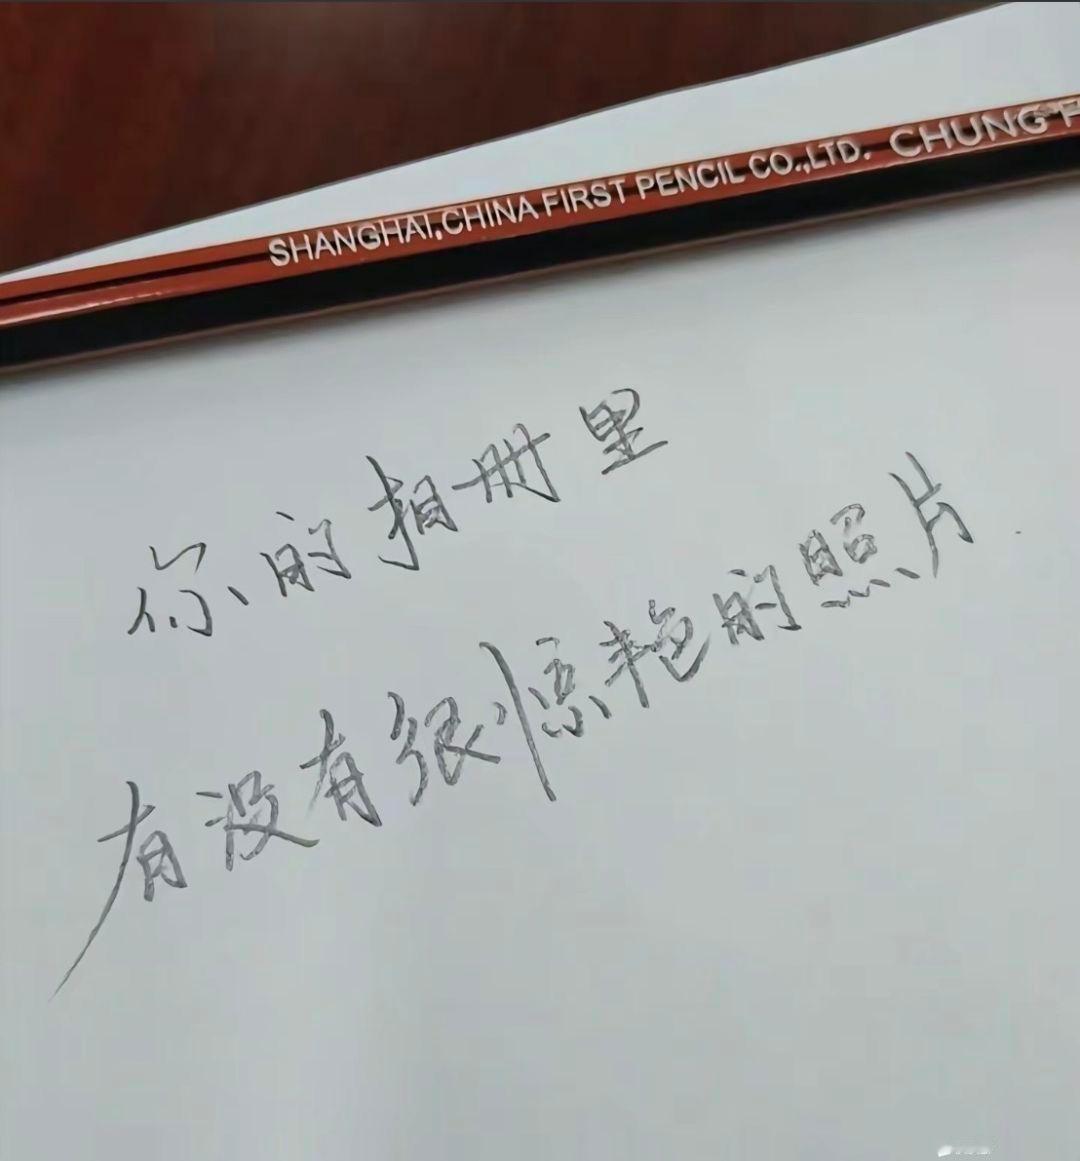 SHANGHAI,CHINA FIRST PENCIL CO.,LTD. CHUNG
你的相册里
有没有很惊艳的照片